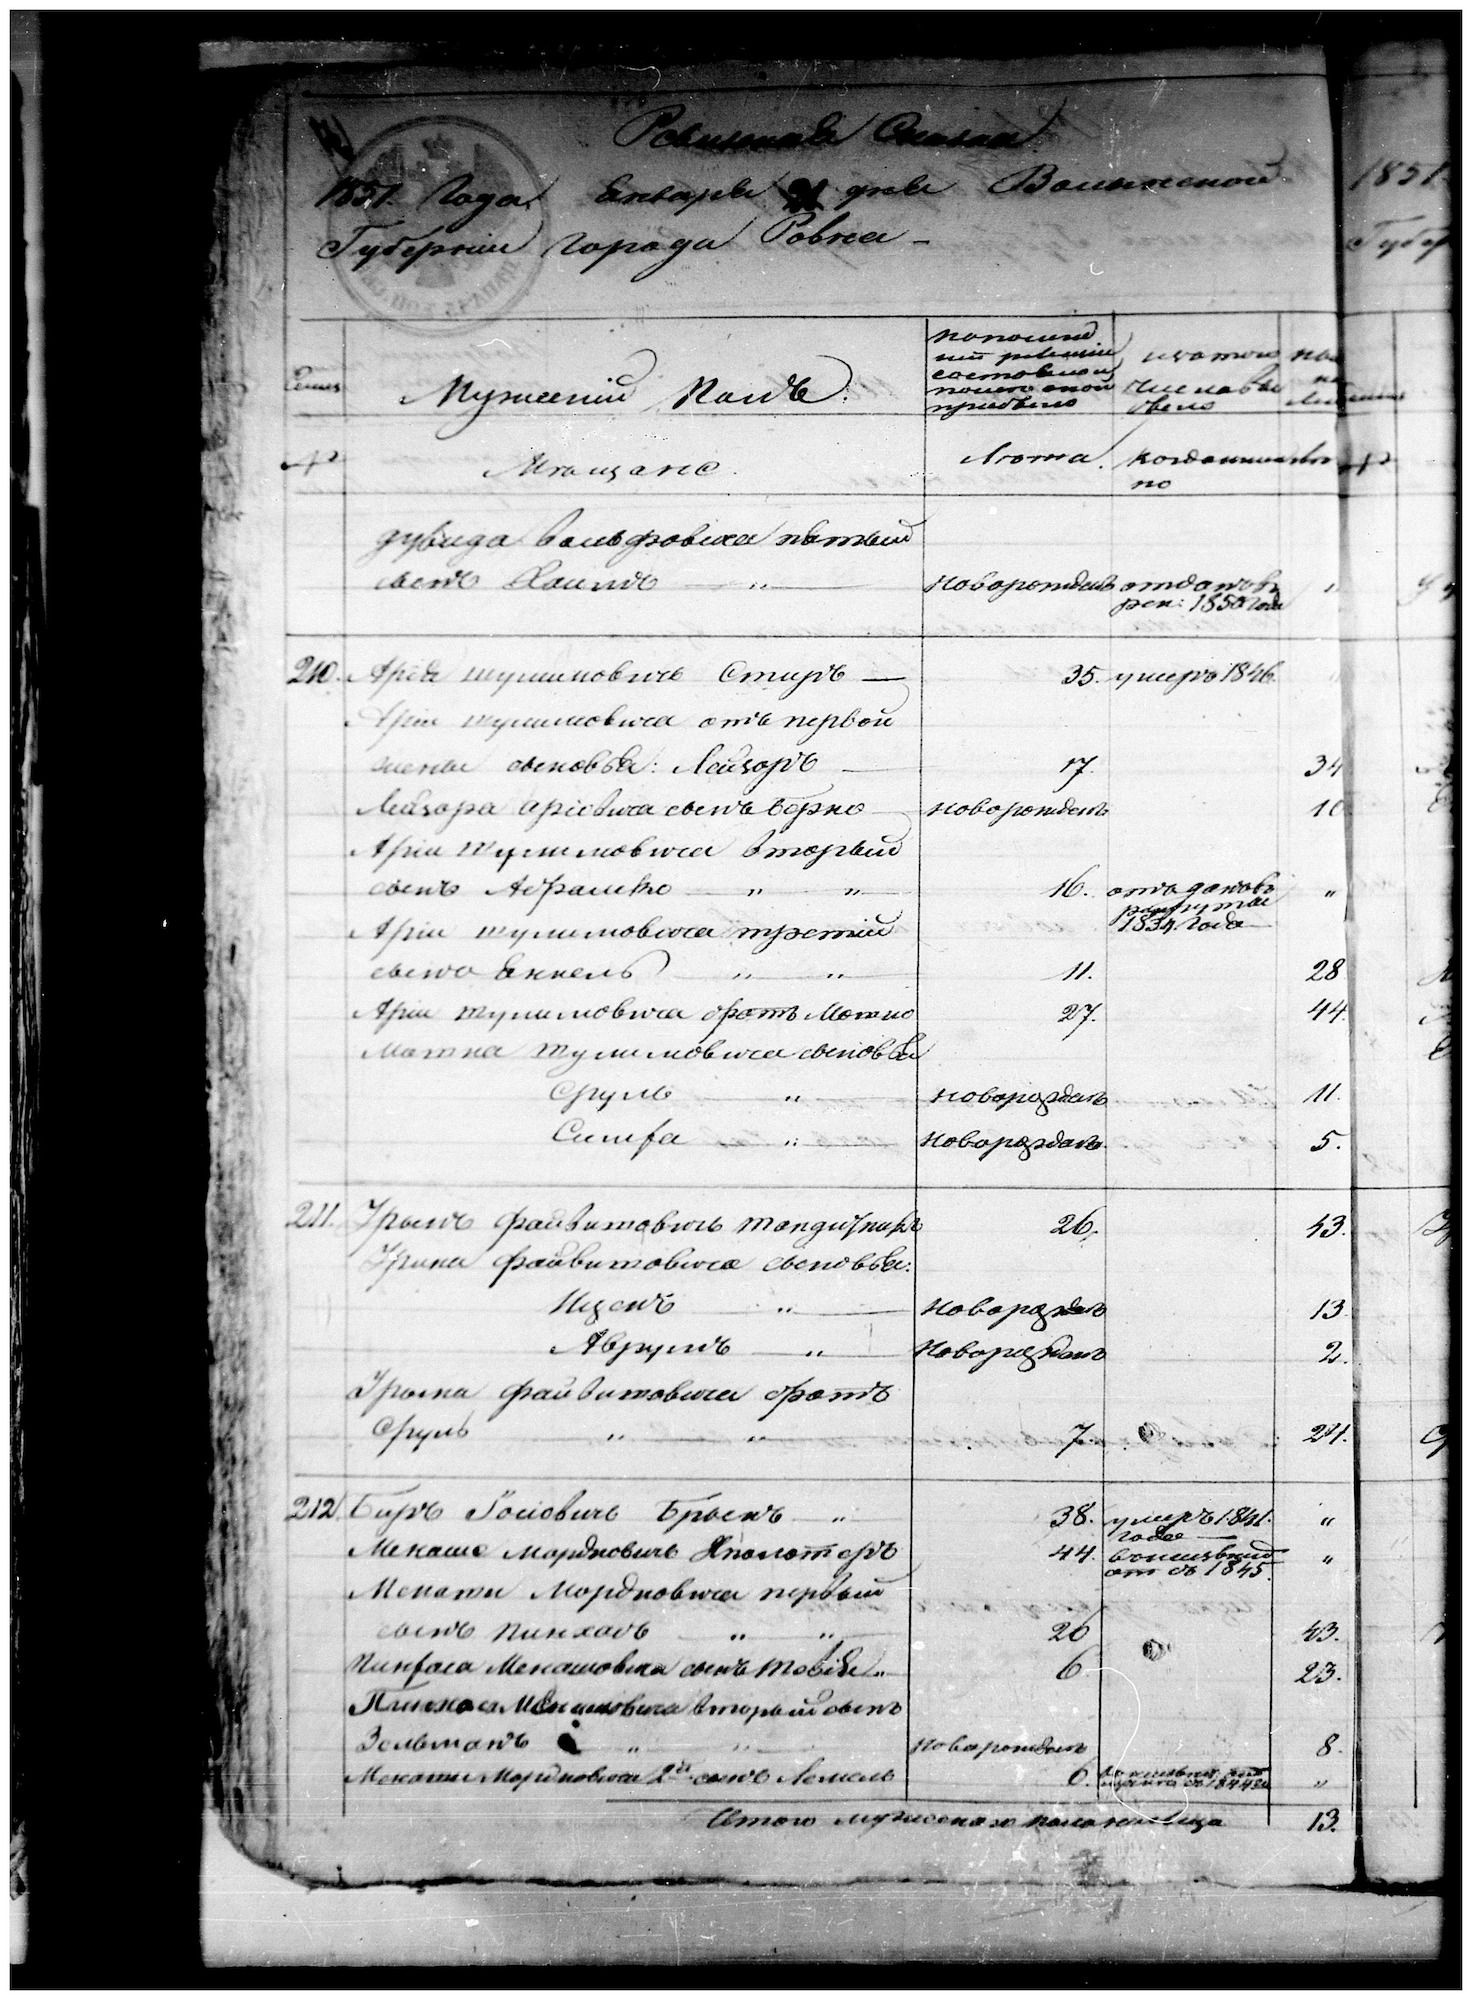 Ревизская Сказка
1851. Года Января 21 дня Волынской
Губернии города Ровна -
Мужеский Полъ:
по последней ревизии состояло и после оной прибыло
изъ того числа выбыло
№
Мещане.
Лета.
когда именно
№
Дувида Вольфовича пятый
сынъ Хаимъ " новорожден отданъ въ рек: 1850 года "
210. Арія Шулимовичъ Стиръ — 35. умеръ 1846. "
Арія Шулимовича отъ первой
жены сыновья: Лейзоръ — 17. 34
Лейзора Аріовича сынъ Берко новорожденъ 10
Арія Шулимовича вторый
сынъ Абрамко " " 16. отъданъ въ рекруты 1834 Года "
Арія Шулимовича третій
сынъ Янкель " " 11. 28
Арія Шулимовича братъ Мотио 27. 44.
Мотиа Шулимовича сыновья
Сруль " новорожденъ 11.
Симха " новорожденъ. 5.
211. Урынъ Файвишовичъ 26. 43.
Урына Файвишовича сыновья:
Ицекъ " новорожденъ 13.
Аврумъ " новорожденъ 2.
Урына Файвишовича братъ
Сруль " " 7. 24.
212. Беръ Іосіовичъ " 38. умеръ 1841. года "
Менаше Мордковичъ 44. 1845. "
Менаши Мордковича первый
сынъ Пинхасъ " " 26 43.
Пинхаса Менашовича сынъ Товія " 6 23.
Пинхаса Менашовича вторый сынъ
Зельманъ " " новорожденъ 8.
Менаши Мордковича 2й сынъ Лемель 6. 1844 "
Итого мужеского пола на лицо 13.
1851.
Губер